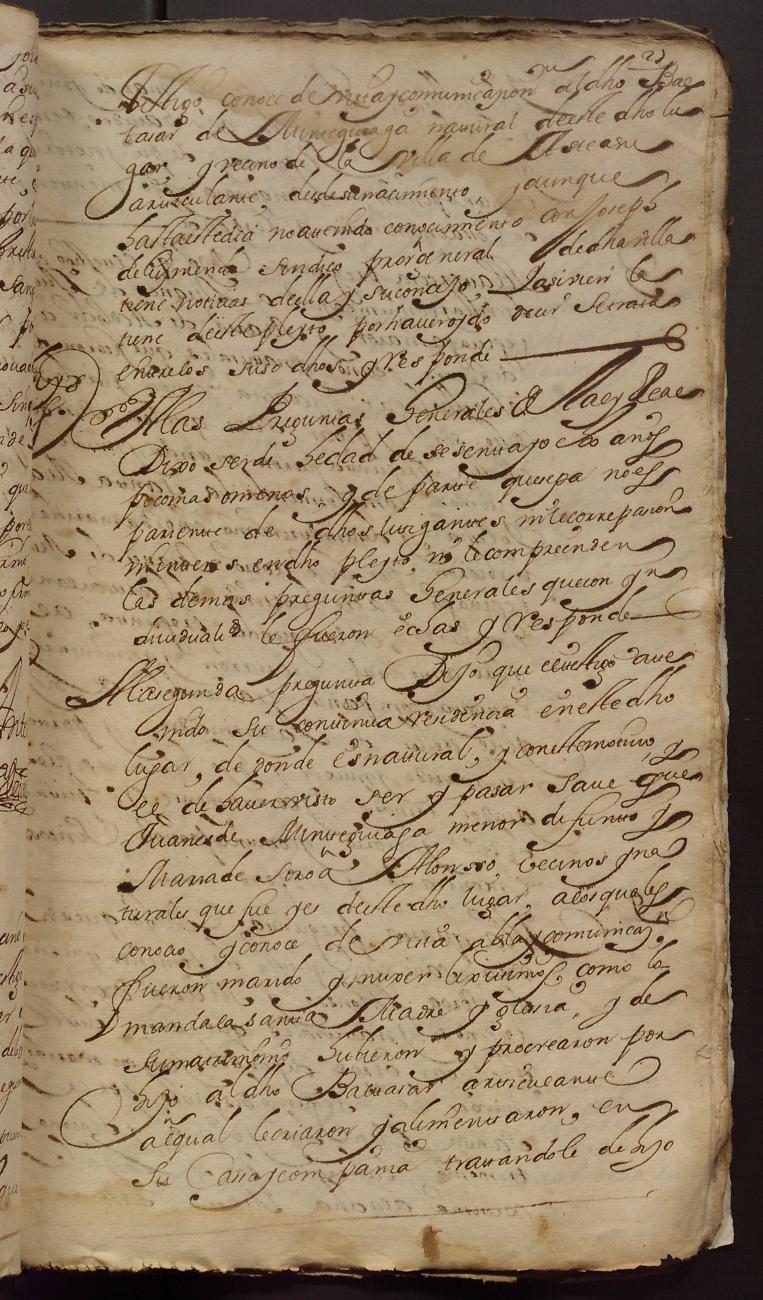 testigo conoce de vista y comunicaçion al dho Bal
tasar de Minteguiaga natural deeste dho lu
gar y vecino de la villa de Asteasu
articulante, desde su nacimiento, y aunque
hasta este dia no a tenido conocimiento con Joseph
de sindico pror general de dha villa
tiene noticias della y su concejo, y asi vien la
tiene deeste pleyto por haver oydo decir se trata
entre los suso dhos y responde
A las Preguntas Generales de la ley Real
Dixo ser de hedad de sesenta y ocho años
poco mas o menos, y de parte que sepa no es
pariente de dhos litigantes ni le corre pasion
ni interes en dho pleyto, ni le comprenden
las demas preguntas Generales que con yn
dividualid le fueron echas y responde
A la segunda pregunta Dijo que el testigo a te
nido su continua residencia en este dho
lugar, de donde es natural, y con este motivo, y
el de haver visto ser y pasar save que
Juanes de Minteguiaga menor difunto y
Maria de Soroa Alonsso, vecinos y na
turales que fue y es deeste dho lugar, a los quales
conocio y conoce de vista abla y comunicazn
fueron marido y muxer lexitimos, como lo
manda la santa Madre yglesia, y de
su matrimonio hubieron y procrearon por
hijo al dho Baltasar articulante
al qual le criaron y alimentaron, en
su Casa y compañia tratandole de hijo